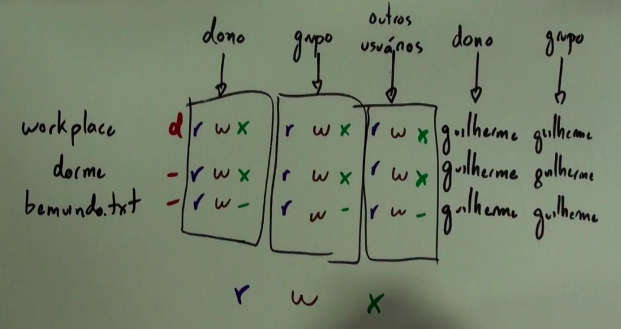 dono grupo outros usuários dono grupo
workplace d r w x r w x r w x guilherme guilherme
dorme - r w x r w x r w x guilherme guilherme
bemundo.txt - r w - r w - r w - guilherme guilherme
r w x